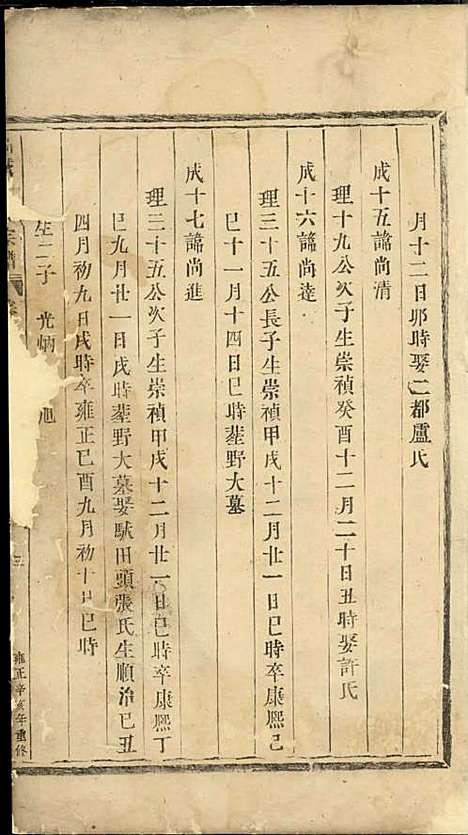 月十二日卯時娶二都盧氏
成十五諱尚清
理十九公次子生崇禎癸酉十二月二十日丑時娶許氏
成十六諱尚達
理三十五公長子生崇禎甲戌十二月廿一日巳時卒康熙己
巳十一月十四日巳時塟野大墓
成十七諱尚進
理三十五公次子生崇禎甲戌十二月廿一日巳時卒康熙丁
巳九月廿一日戌時塟野大墓娶馱田頭張氏生順治己丑
四月初九日戌時卒雍正己酉九月初十日巳時
生二子 光炳 旭
宗譜
三
雍正辛亥年重修